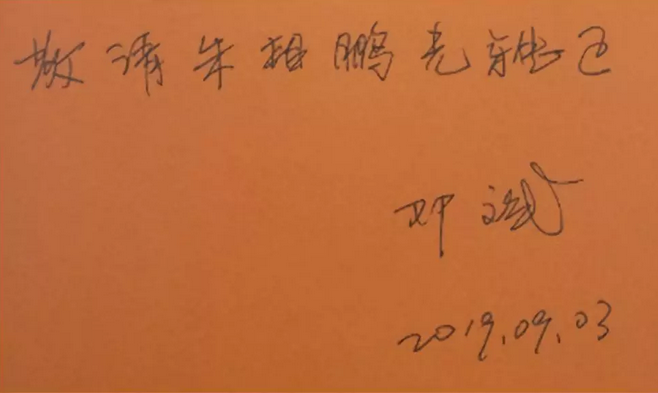 敬请朱相鹏先雅正
邓斌
2019.09.03